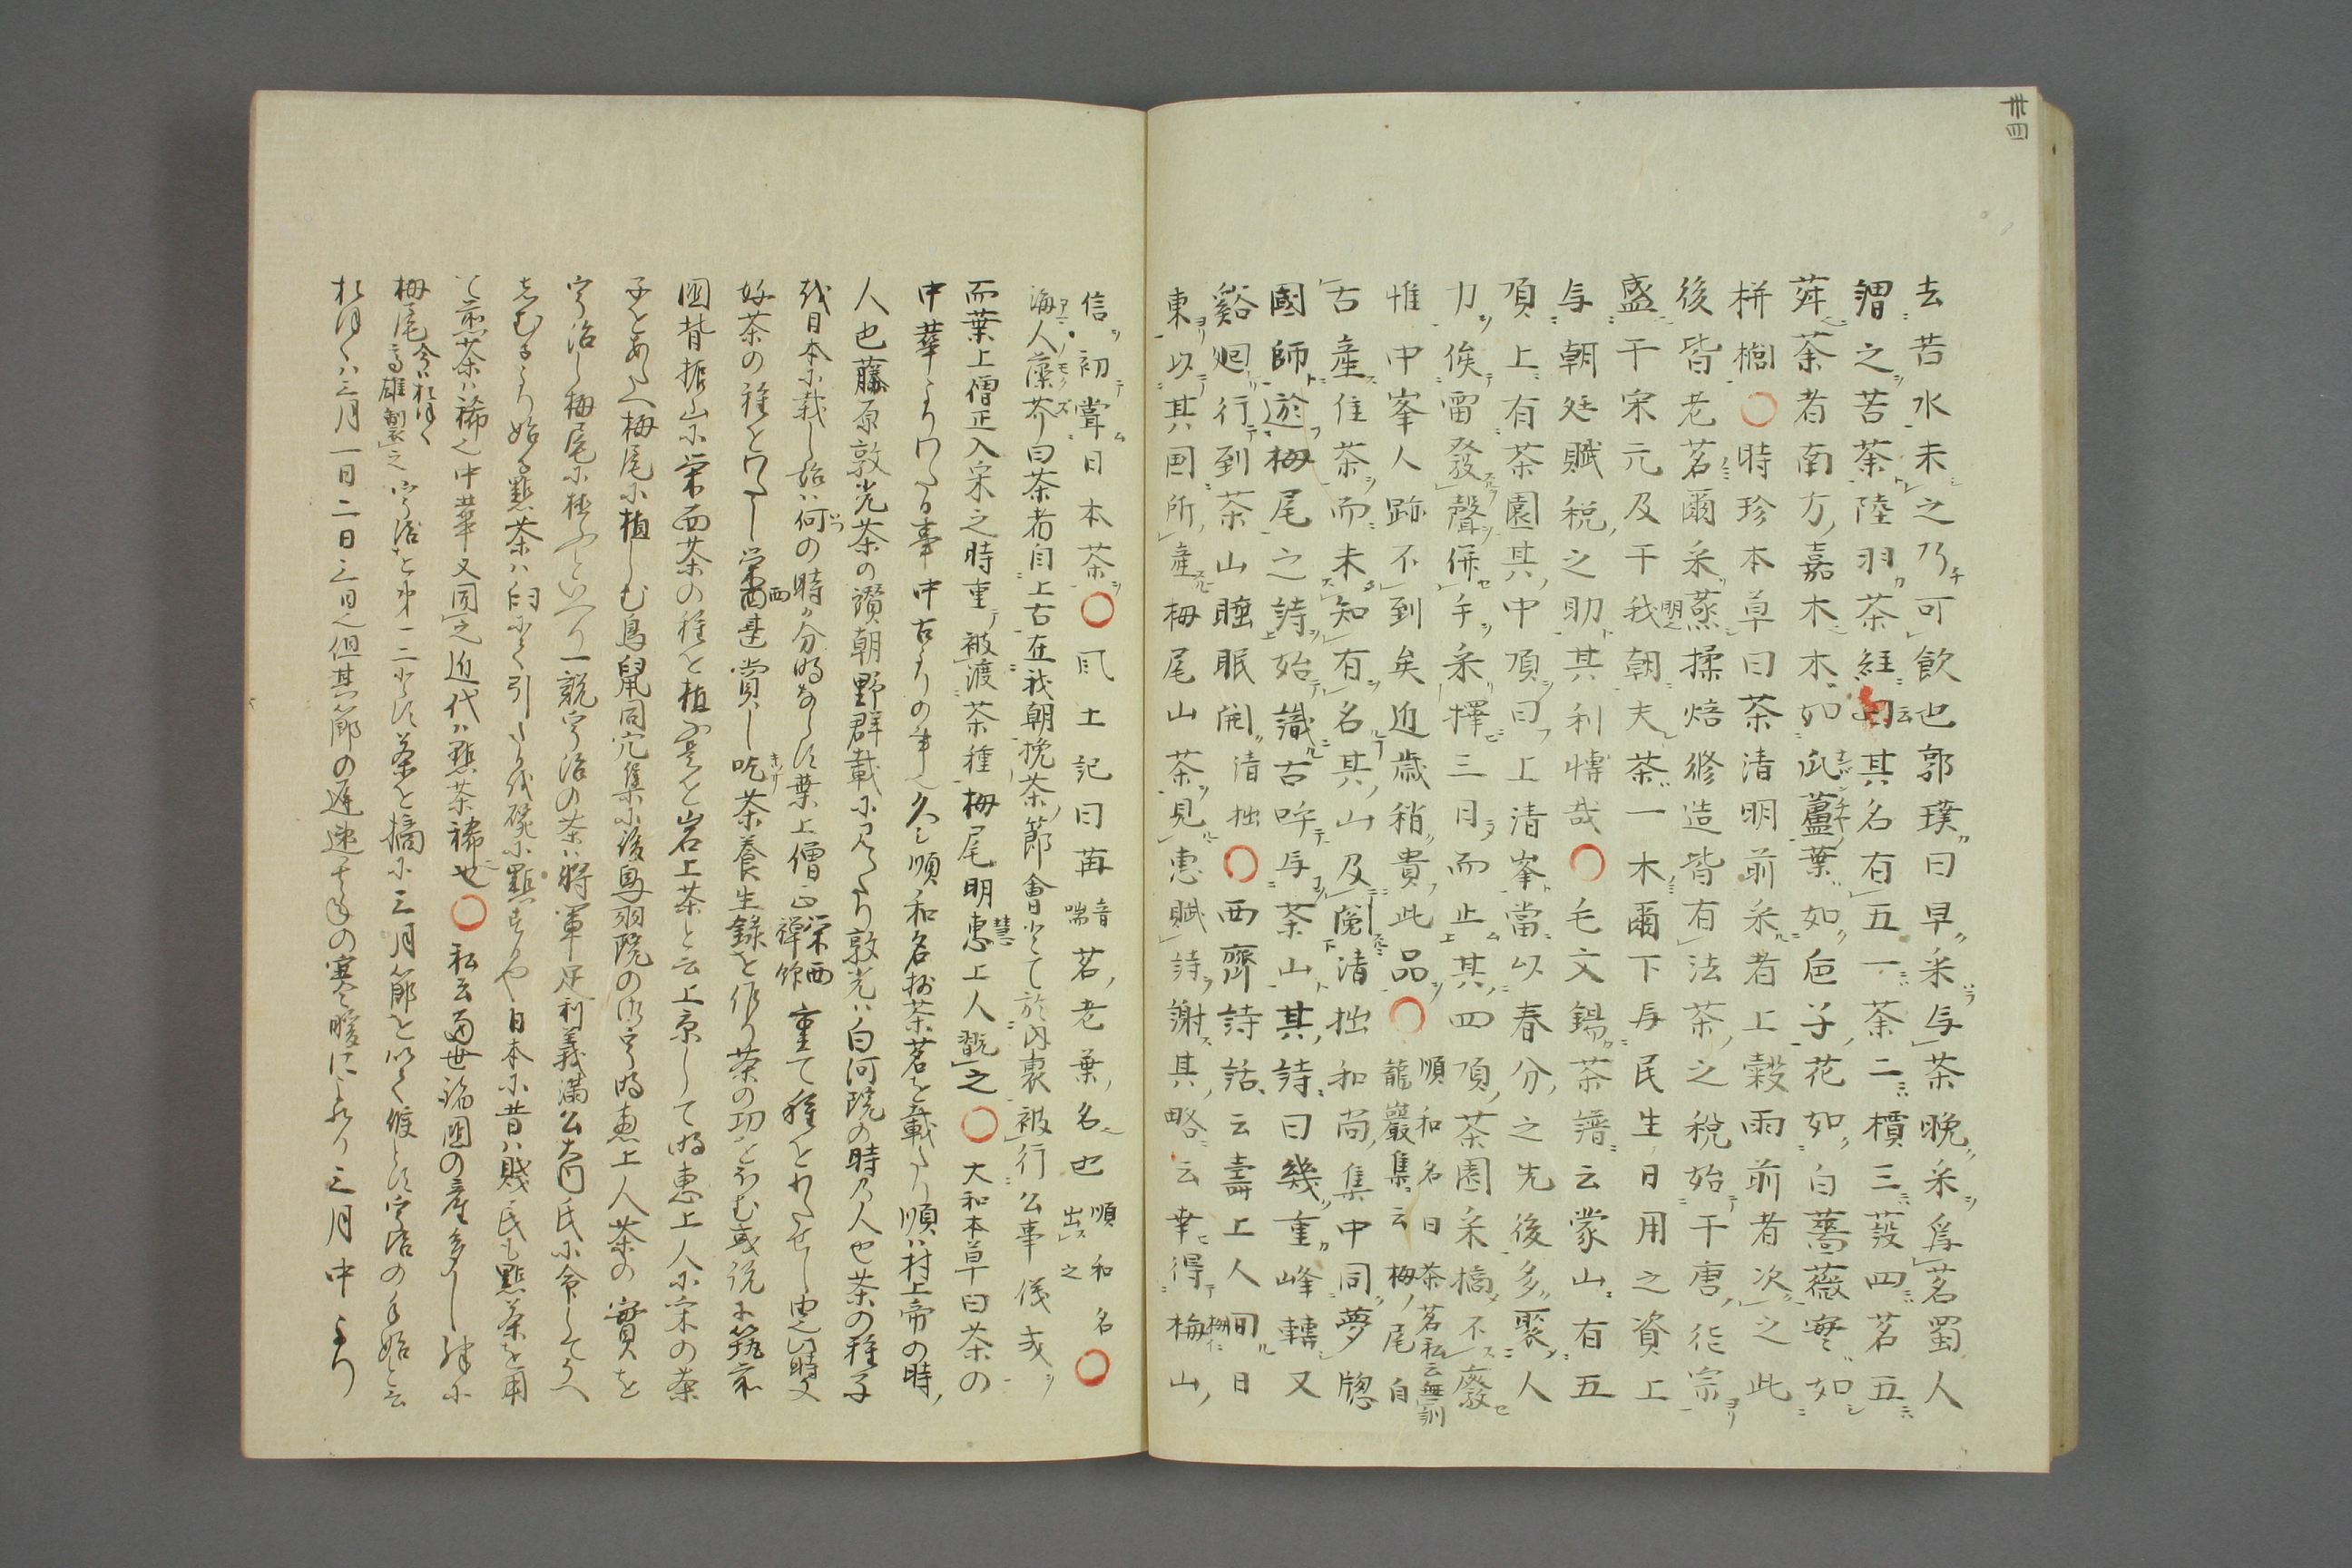 卅四
去苦水未之乃可飲也郭璞曰早采与茶晩采爲茗蜀人
謂之苦茶陸羽茶経云其名有五一茶二檟三蔎四茗五
荈茶者南方嘉木木如瓜蘆葉如巵子花如白薔薇実如
栟櫚○時珍本草曰茶清明前采者上穀雨前者次之此
後皆老茗爾采蒸揉焙修造皆有法茶之税始于唐徳宗
盛于宋元及于我朝夫茶一木爾下与民生日用之資上
与朝廷賦税之助其利博哉○毛文錫茶譜云蒙山有五
頂上有茶園其中頂曰上清峯當以春分之先後多聚人
力俟雷發聲併手采擇三日而止其四頂茶園采摘不廢
惟中峯人跡不到矣近歳稍貴此品○順和名曰茶茗私云無訓籠巖集云栂尾自
古産住茶而未知有名其山及閲清拙和尚集中同夢牕
國師遊栂尾之詩始識古呼与茶山其詩曰幾重峰轉又
谿廻行到茶山睡眠開清拙○西齊詩話云壽上人間日
東以其国所産栂尾山茶見惠賦詩謝其略云幸得梅山
信初甞日本茶○風土記曰苒音喘茗老葉名也順和名出之○
海人藻芥曰茶者自上古在我朝挽茶節會とて於内裏被行公事儀或
而葉上僧正入宋之時重被渡茶種栂尾明惠上人翫之○大和本草曰茶の
中華よりわたる事中古よりの事也久し順和名抄茶茗を載たり順ハ村上帝の時
人也藤原敦光茶の讃朝野群載に見えたり敦光ハ白河院の時乃人也茶の種子
我日本に載し始ハ何の時か分明ならす葉上僧正栄西禅師重て種をわたせし由此時又
好茶の種をわたし栄西甚賞し吃茶養生録を作り茶の功をほむ或説に筑前
國背振山に栄西茶の種を植ふ是を岩上茶と云上京して明惠上人に宋の茶
子をあたへ栂尾に植しむ鳥鼠同穴集に後鳥羽院の御宇明恵上人茶の實を
宇治し栂尾に植ふといへり一説宇治の茶ハ将軍足利義満公大内氏に令してうへ
しむるより始る點茶ハ臼にて引たるを碗に點するや日本に昔ハ賤民も點茶を用
て煎茶ハ稀也中華又同之近代ハ點茶稀也○私云當世諸国の産多し殊に
栂尾今ハおほく高雄製之宇治を第一二とす茶を摘に三月節を以て候とす宇治の手始と云
おほくハ三月一日二日三日也但其節の遅速年の寒暖によれり三月中より